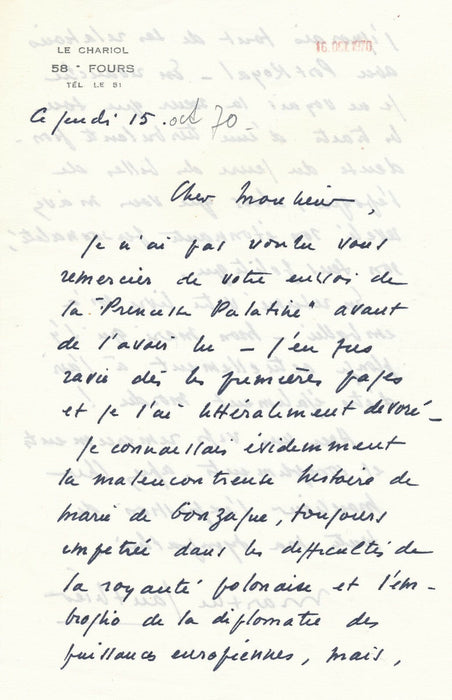 LE CHARIOL
58 - FOURS
TÉL LE 51
16. OCT 1970
Ce jeudi 15. oct 70
Cher Monsieur,
Je n'ai pas voulu vous
remercier de votre envoi de
la "Princesse Palatine" avant
de l'avoir lu – J'en fus
ravie dès les premières pages
et je l'ai littéralement dévoré –
Je connaissais évidemment
la malencontreuse histoire de
Marie de Gonzague, toujours
empetrée dans les difficultés de
la royauté polonaise et l'im-
broglio de la diplomatie des
puissances européennes, mais,